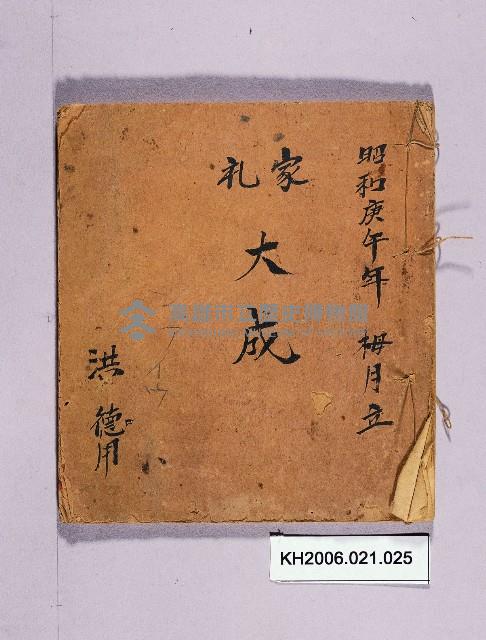 昭和庚午年 梅月立
家礼
大成
洪德用
高雄市立歷史博物館
KH2006.021.025